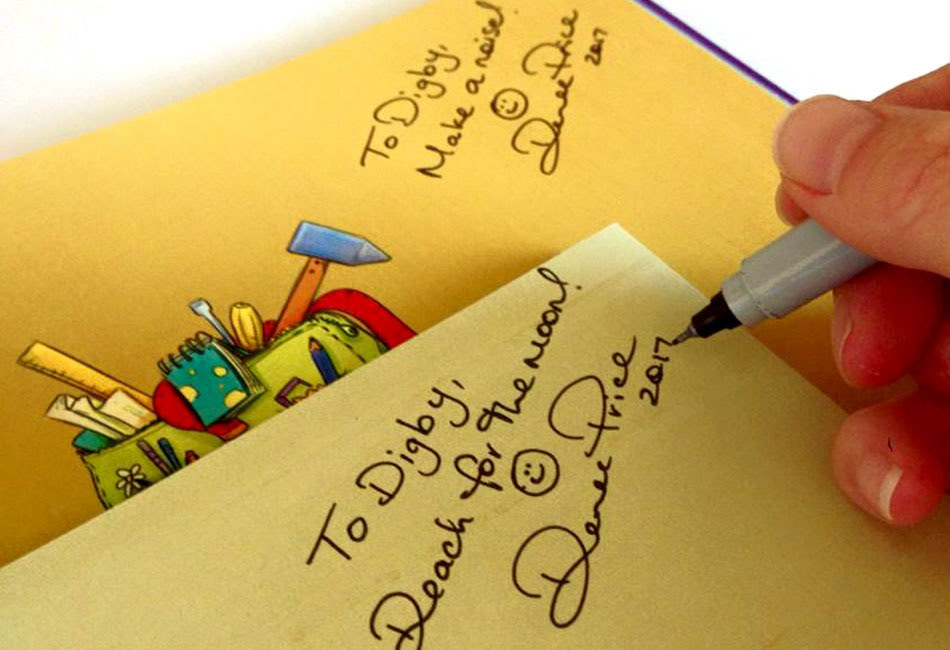 To Digby,
Make a noise!
Renee Price
2017
To Digby,
Reach for the moon!
Renee Price
2017